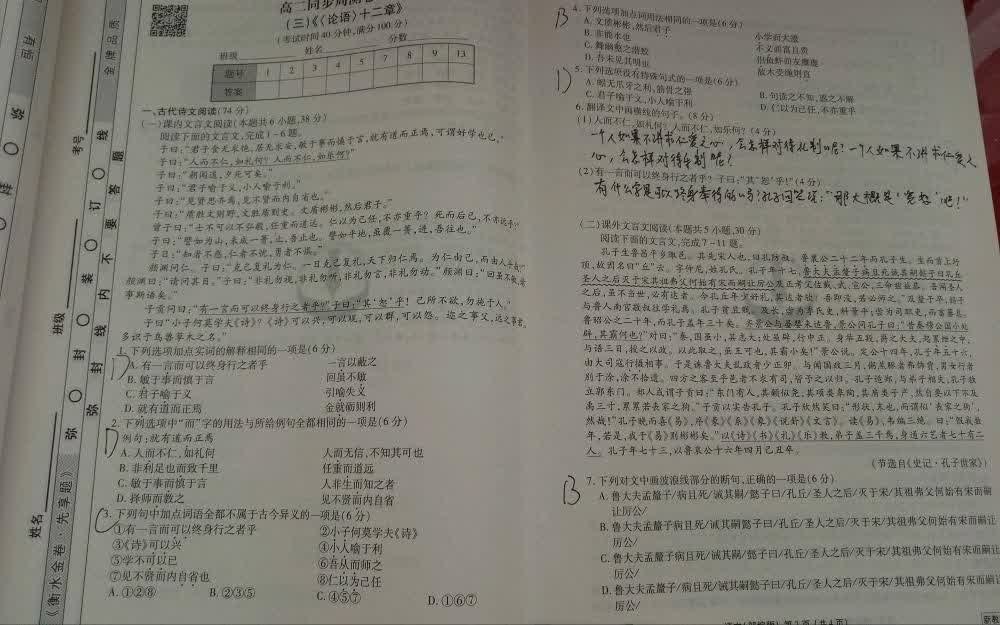 高二同步周测
(三)《〈论语〉十二章》
(考试时间40分钟,满分100分)
班级 姓名 分数
题号 1 2 3 4 5 6 7 8 9 13
答案
一、古代诗文阅读(74分)
(一)课内文言文阅读(本题共6小题,38分)
阅读下面的文言文,完成1~6题。
子曰:“君子食无求饱,居无求安,敏于事而慎于言,就有道而正焉,可谓好学也已。”
子曰:“人而不仁,如礼何?人而不仁,如乐何?”
子曰:“朝闻道,夕死可矣。”
子曰:“君子喻于义,小人喻于利。”
子曰:“见贤思齐焉,见不贤而内自省也。”
子曰:“质胜文则野,文胜质则史。文质彬彬,然后君子。”
曾子曰:“士不可以不弘毅,任重而道远。仁以为己任,不亦重乎?死而后已,不亦远乎?”
子曰:“譬如为山,未成一篑,止,吾止也。譬如平地,虽覆一篑,进,吾往也。”
子曰:“知者不惑,仁者不忧,勇者不惧。”
颜渊问仁。子曰:“克己复礼为仁。一日克己复礼,天下归仁焉。为仁由己,而由人乎哉?”
颜渊曰:“请问其目。”子曰:“非礼勿视,非礼勿听,非礼勿言,非礼勿动。”颜渊曰:“回虽不敏,请
事斯语矣。”
子贡问曰:“有一言而可以终身行之者乎?”子曰:“其‘恕’乎!己所不欲,勿施于人。”
子曰“小子何莫学夫《诗》?《诗》可以兴,可以观,可以群,可以怨。迩之事父,远之事君,
多识于鸟兽草木之名。”
1.下列选项加点实词的解释相同的一项是(6分)
D
A.有一言而可以终身行之者乎 一言以蔽之
B.敏于事而慎于言 回虽不敏
C.君子喻于义 引喻失义
D.就有道而正焉 金就砺则利
2.下列选项中“而”字的用法与所给例句全都相同的一项是(6分)
D
例句:就有道而正焉
A.人而不仁,如礼何 人而无信,不知其可也
B.非利足也而致千里 任重而道远
C.敏于事而慎于言 人非生而知之者
D.择师而教之 见不贤而内自省
C
3.下列句中加点词语全都不属于古今异义的一项是(6分)
①有一言而可以终身行之者乎 ②小子何莫学夫《诗》
③《诗》可以兴 ④小人喻于利
⑤学不可以已 ⑥吾从而师之
⑦见不贤而内自省也 ⑧仁以为己任
A.①②⑧ B.②③⑤ C.④⑤⑦ D.①⑥⑦
B
4.下列选项加点词用法相同的一项是(6分)
A.文质彬彬,然后君子 小学而大遗
B.非能水也 不义而富且贵
C.舞幽壑之潜蛟 侣鱼虾而友麋鹿
D.吾未见其明也 故木受绳则直
D
5.下列选项没有特殊句式的一项是(6分)
A.蚓无爪牙之利,筋骨之强 B.句读之不知,惑之不解
C.君子喻于义,小人喻于利 D.仁以为己任,不亦重乎
6.翻译文中画横线的句子。(8分)
(1)人而不仁,如礼何?人而不仁,如乐何?(4分)
一个人如果不讲求仁爱之心,会怎样对待礼制呢?一个人如果不讲求仁爱之
心,会怎样对待乐制呢?
(2)有一言而可以终身行之者乎?子曰:“其‘恕’乎!(4分)
有什么字是可以终身奉行的吗?孔子回答:“那大概是‘宽恕’吧!”
(二)课外文言文阅读(本题共5小题,30分)
阅读下面的文言文,完成7~11题。
孔子生鲁昌平乡陬邑。其先宋人也,曰孔防叔。鲁襄公二十二年而孔子生。生而首上圩
顶,故因名曰“丘”云。字仲尼,姓孔氏。孔子年十七,鲁大夫孟釐子病且死诫其嗣懿子曰孔丘
圣人之后灭于宋其祖弗父何始有宋而嗣让厉公及正考父佐戴、武、宣公,三命兹益恭。吾闻圣人
之后,虽不当世,必有达者。今孔丘年少好礼,其达者欤?吾即没,若必师之。”及釐子卒,懿子
与鲁人南宫敬叔往学礼焉。孔子贫且贱。及长,尝为季氏史,料量平;尝为司职吏,而畜蕃息。
鲁昭公之二十年,而孔子盖年三十矣。齐景公与晏婴来适鲁,景公问孔子曰:“昔秦穆公国小处
辟,其霸何也?”对曰:“秦,国虽小,其志大;处虽辟,行中正。身举五羖,爵之大夫,起累绁之中,
与语三日,授之以政。以此取之,虽王可也,其霸小矣!”景公说。定公十四年,孔子年五十六,
由大司寇行摄相事。于是诛鲁大夫乱政者少正卯。与闻国政三月,粥羔豚者弗饰贾,男女行者
别于涂,涂不拾遗。四方之客至乎邑者不求有司,皆予之以归。孔子适郑,与弟子相失,孔子独
立郭东门。郑人或谓子贡曰:“东门有人,其颡似尧,其项类皋陶,其肩类子产,然自要以下不及
禹三寸,累累若丧家之狗。”子贡以实告孔子。孔子欣然笑曰:“形状,末也,而谓似‘丧家之狗’,
然哉!”孔子晚而喜《易》,序《彖》《系》《象》《说卦》《文言》。读《易》,韦编三绝。曰:“假我数
年,若是,我于《易》则彬彬矣。”以《诗》《书》《礼》《乐》教,弟子盖三千焉,身通六艺者七十有二
人。孔子年七十三,以鲁哀公十六年四月己丑卒。
(节选自《史记·孔子世家》)
B
7.下列对文中画波浪线部分的断句,正确的一项是(6分)
A.鲁大夫孟釐子/病且死/诫其嗣/懿子曰/孔丘/圣人之后/灭于宋/其祖弗父何始有宋而嗣
让厉公/
B.鲁大夫孟釐子病且死/诫其嗣懿子曰/孔丘/圣人之后/灭于宋/其祖弗父何始有宋而嗣让
厉公/
C.鲁大夫孟釐子病且死/诫其嗣/懿子曰/孔丘/圣人之后/灭于宋/其祖弗父何始有宋而嗣让
厉公/
D.鲁大夫孟釐子/病且死/诫其嗣懿子曰/孔丘/圣人之后/灭于宋/其祖弗父何始有宋而嗣让
厉公/
金牌品质
考号
班级
姓名
弥 封 线 内 不 要 答 题
弥 封 装 订 线
《衡水金卷·先享题》